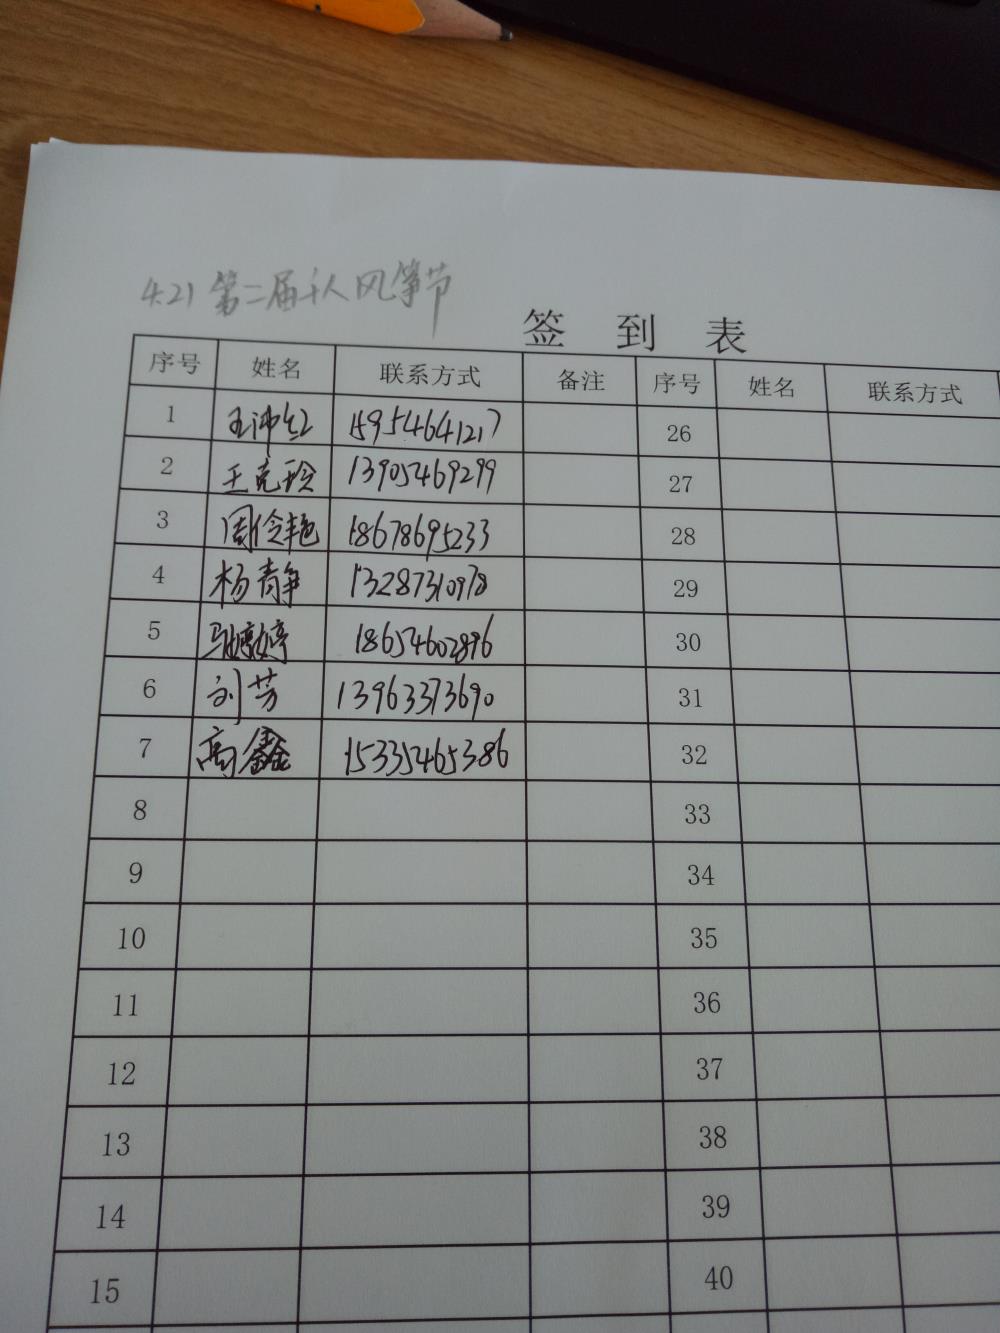 4.21 第二届千人风筝节
签到表
序号 姓名 联系方式 备注 序号 姓名 联系方式
1 王沛红 15954641217 26
2 王克珍 13905469299 27
3 周伶艳 18678695233 28
4 杨青争 13287310978 29
5 婷婷 18654602896 30
6 刘芳 13963373690 31
7 高鑫 15335465386 32
8 33
9 34
10 35
11 36
12 37
13 38
14 39
15 40